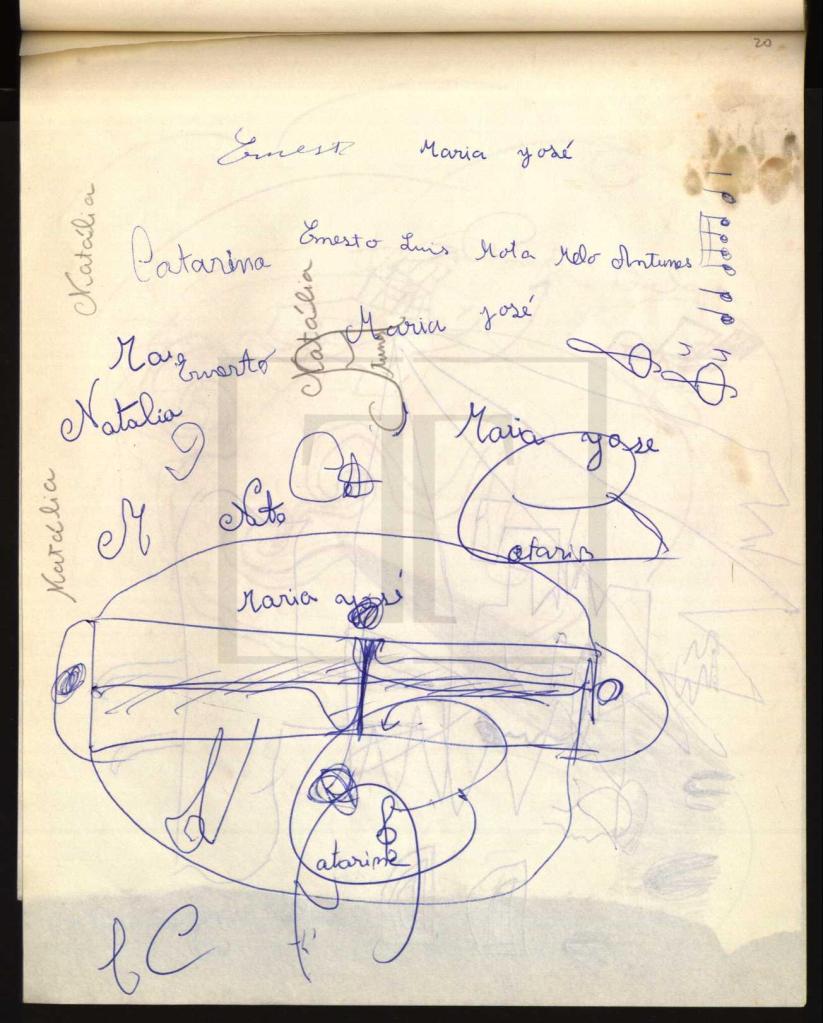 20
Ernest Maria José
Natália
Catarina Ernesto Luis Mota Melo Antunes
Natália
Maria José
Ma Ernesto
Natalia
Maria Jose
C
M Nata
Natália
atarin
Maria José
atarina
C